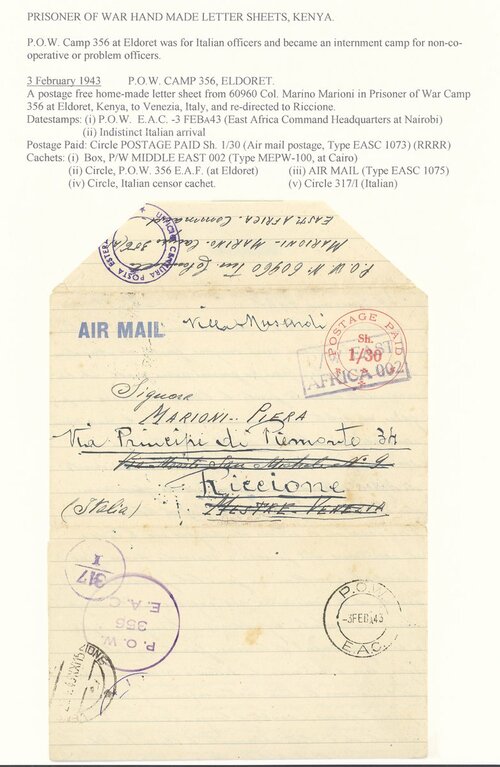 PRISONER OF WAR HAND MADE LETTER SHEETS, KENYA.
P.O.W. Camp 356 at Eldoret was for Italian officers and became an internment camp for non-co-
operative or problem officers.
3 February 1943 P.O.W. CAMP 356, ELDORET.
A postage free home-made letter sheet from 60960 Col. Marino Marioni in Prisoner of War Camp
356 at Eldoret, Kenya, to Venezia, Italy, and re-directed to Riccione.
Datestamps: (i) P.O.W. E.A.C. -3 FEBA43 (East Africa Command Headquarters at Nairobi)
(ii) Indistinct Italian arrival
Postage Paid: Circle POSTAGE PAID Sh. 1/30 (Air mail postage, Type EASC 1073) (RRRR)
Cachets: (i) Box, P/W MIDDLE EAST 002 (Type MEPW-100, at Cairo)
(ii) Circle, P.O.W. 356 E.A.F. (at Eldoret) (iii) AIR MAIL (Type EASC 1075)
(iv) Circle, Italian censor cachet. (v) Circle 317/I (Italian)
EAST AFRICA Command
MARIONI - MARINO
P.O.W. N° 60960
CENSURA POSTA ESTERA
AIR MAIL
Villa
POSTAGE PAID
Sh.
1/30
EAST
AFRICA 002
Signora
MARIONI - PIERA
Via Principi di Piemonte 34
Riccione
(Italia) MESTRE - VENEZIA
317
I
P.O.W.
356
E.A.C.
P.O.W.
-3FEBA43
E.A.C.